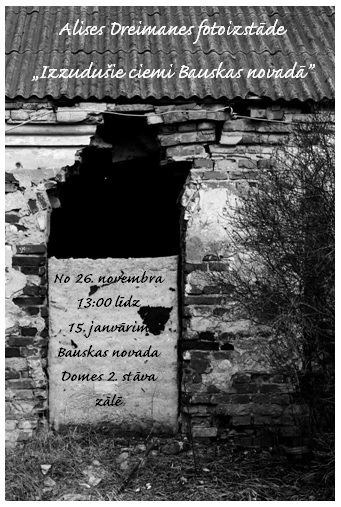 Alises Dreimanes fotoizstāde
„Izzudušie ciemi Bauskas novadā”
No 26. novembra
13:00 līdz
15. janvārim
Bauskas novada
Domes 2. stāva
zālē